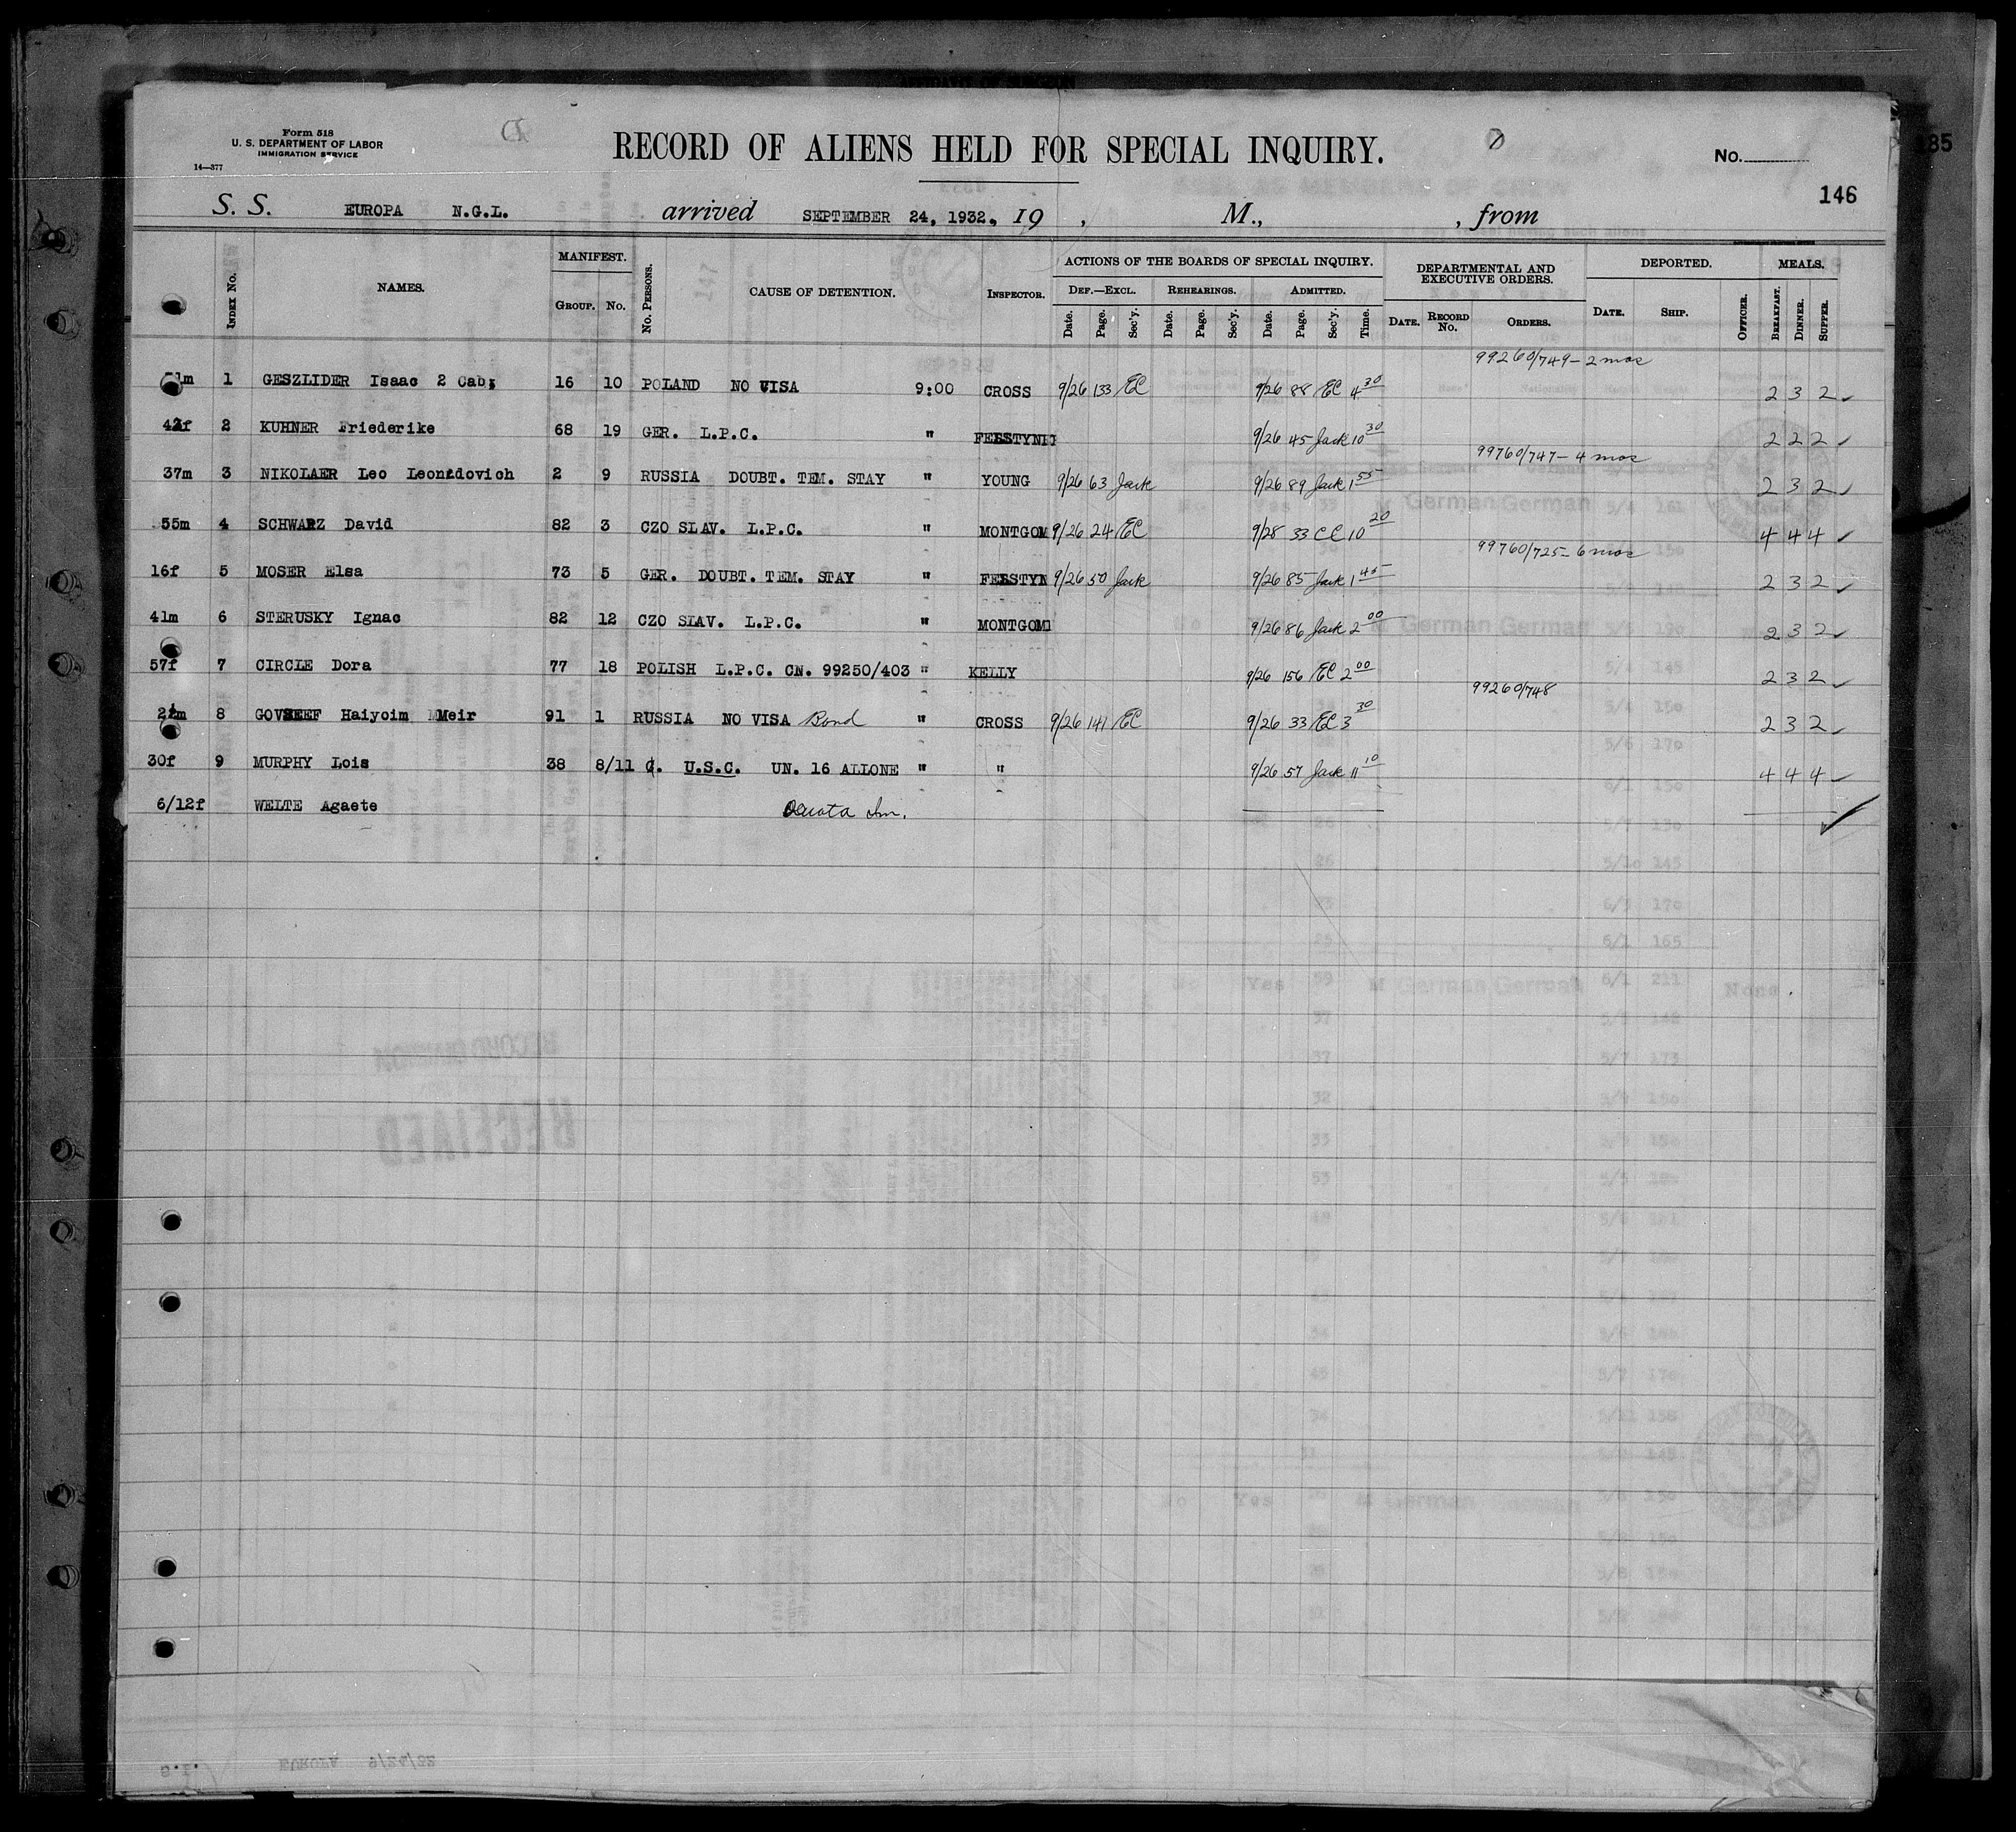 Form 518
U. S. DEPARTMENT OF LABOR
IMMIGRATION SERVICE
14—377
RECORD OF ALIENS HELD FOR SPECIAL INQUIRY.
No.
185
146
S. S. EUROPA N.G.L. arrived SEPTEMBER 24, 1932, 19 , M., , from
INDEX No. NAMES. MANIFEST. GROUP. No. No. PERSONS. CAUSE OF DETENTION. INSPECTOR. ACTIONS OF THE BOARDS OF SPECIAL INQUIRY. DEPARTMENTAL AND EXECUTIVE ORDERS. DEPORTED. MEALS.
DEF.—EXCL. REHEARINGS. ADMITTED.
Date. Page. Sec'y. Date. Page. Sec'y. Date. Page. Sec'y. Time. DATE. RECORD No. ORDERS. DATE. SHIP. OFFICER. BREAKFAST. DINNER. SUPPER.
99260/749 - 2 mos
1m 1 GESZLIDER Isaac 2 Cab, 16 10 POLAND NO VISA 9:00 CROSS 9/26 133 EC 9/26 88 EC 4 30 2 3 2 ✓
42f 2 KUHNER Friederike 68 19 GER. L.P.C. " 9/26 45 Jack 10 30 2 2 2 ✓
99760/747 - 4 mos
37m 3 NIKOLAER Leo Leonidovich 2 9 RUSSIA DOUBT. TEM. STAY " YOUNG 9/26 63 Jack 9/26 89 Jack 1 55 2 3 2 ✓
55m 4 SCHWARZ David 82 3 CZO SLAV. L.P.C. " MONTGOM 9/26 24 EC 9/28 33 CC 10 20 4 4 4 ✓
99760/725 - 6 mos
16f 5 MOSER Elsa 73 5 GER. DOUBT. TEM. STAY " FELSTYN 9/26 50 Jack 9/26 85 Jack 1 45 2 3 2 ✓
41m 6 STERUSKY Ignac 82 12 CZO SLAV. L.P.C. " MONTGOM 9/26 86 Jack 2 00 2 3 2 ✓
57f 7 CIRCLE Dora 77 18 POLISH L.P.C. CN. 99250/403 " KELLY 9/26 156 EC 2 00 2 3 2 ✓
99260/748
22m 8 Haiyoim Meir 91 1 RUSSIA NO VISA Bond " CROSS 9/26 141 EC 9/26 33 EC 3 30 2 3 2 ✓
30f 9 MURPHY Lois 38 8/11 C. U.S.C. UN. 16 ALLONE " " 9/26 57 Jack 11 10 4 4 4 ✓
6/12f WELTE Agaete Quota Im. ✓
RECORD DIVISION
RECEIVED
S.I. EUROPA 9/24/32